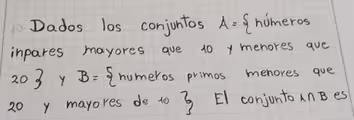 Dados los conjuntos A = { números
inpares mayores que 10 y menores que
20 } y B = { numeros primos menores que
20 y mayores de 10 } El conjunto A∩B es